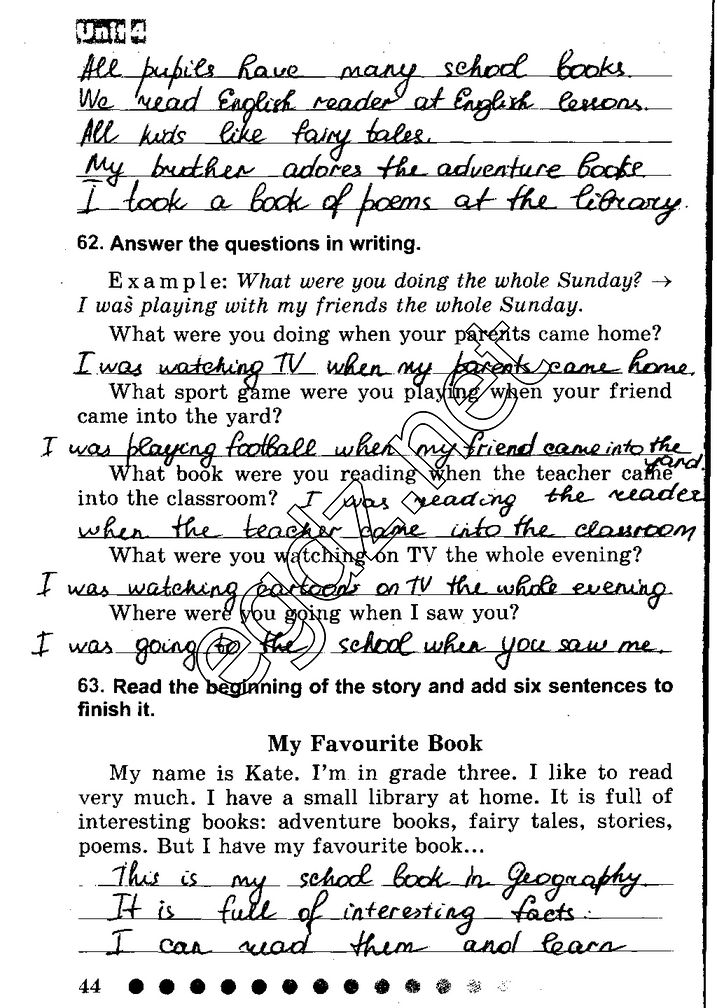 Unit 4
All pupils have many school books.
We read English reader at English lessons.
All kids like fairy tales.
My brother adores the adventure books
I took a book of poems at the library.
62. Answer the questions in writing.
Example: What were you doing the whole Sunday? →
I was playing with my friends the whole Sunday.
What were you doing when your parents came home?
I was watching TV when my parents came home.
What sport game were you playing when your friend
came into the yard?
I was playing football when my friend came into the
yard.
What book were you reading when the teacher came
into the classroom? I was reading the reader
when the teacher came into the classroom
What were you watching on TV the whole evening?
I was watching cartoons on TV the whole evening.
Where were you going when I saw you?
I was going to the school when you saw me.
63. Read the beginning of the story and add six sentences to
finish it.
My Favourite Book
My name is Kate. I'm in grade three. I like to read
very much. I have a small library at home. It is full of
interesting books: adventure books, fairy tales, stories,
poems. But I have my favourite book...
This is my school book in Geography.
It is full of interesting facts.
I can read them and learn
44
egdz.net